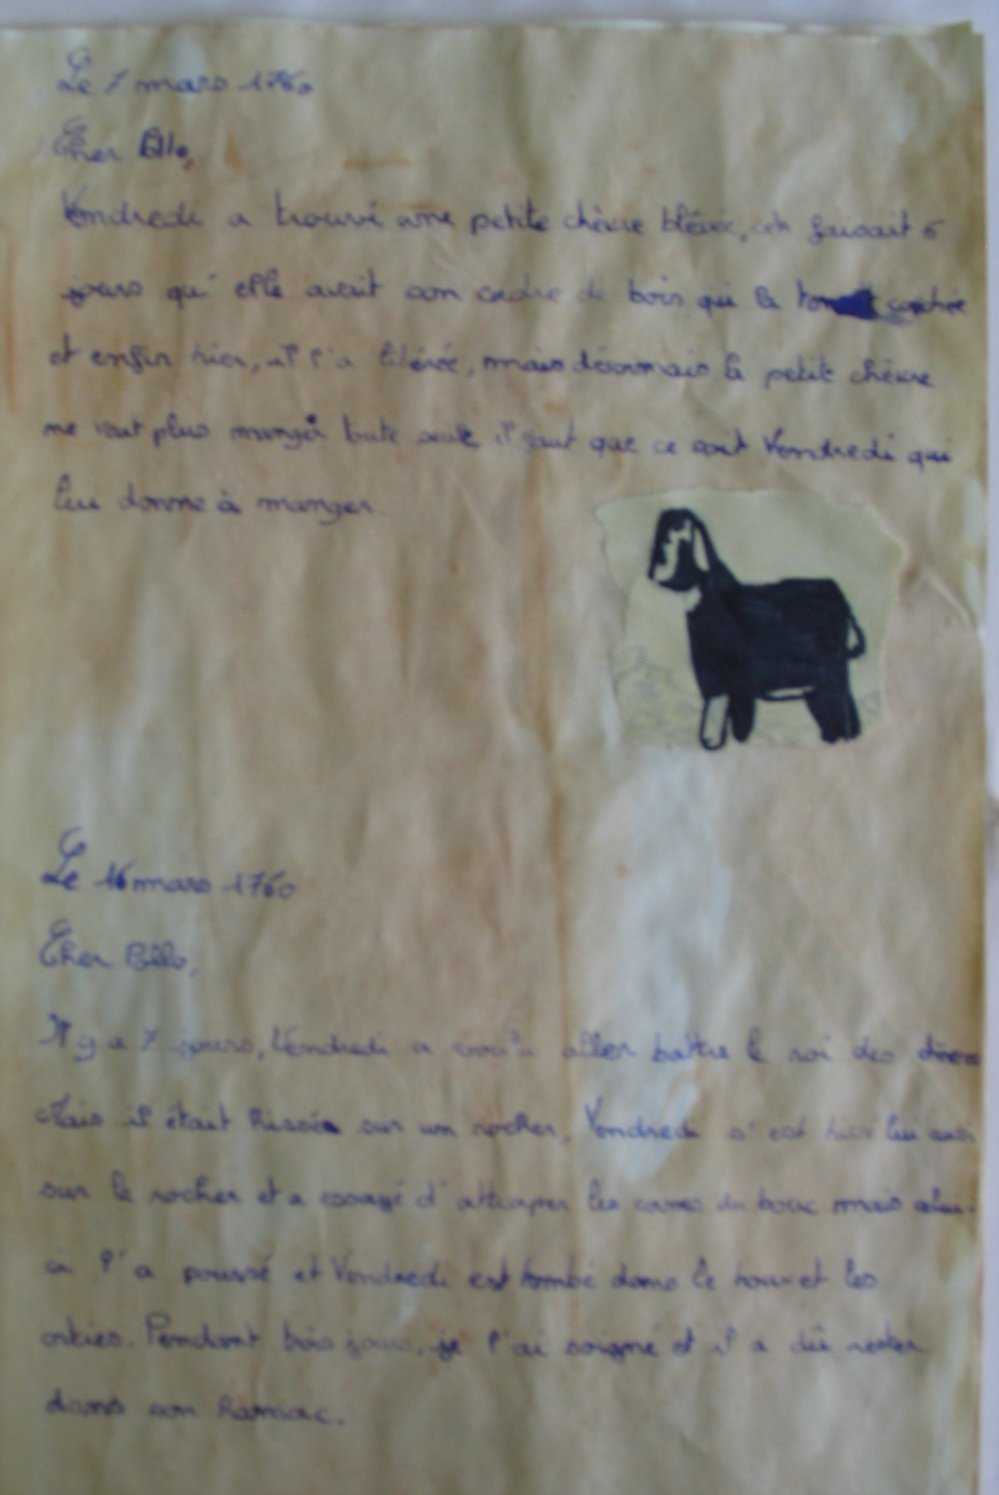 Le 7 mars 1760
Cher
Vendredi a trouvé une petite chèvre blessée, cela faisait 6
jours qu'elle avait son cadre de bois qui la couchée
et enfin hier, il l'a libérée, mais désormais la petite chèvre
ne veut plus manger toute seule il faut que ce soit Vendredi qui
lui donne à manger.
Le 16 mars 1760
Cher
Il y a 7 jours, Vendredi a voulu aller battre le roi des
Mais il était hissée sur un rocher, Vendredi s'est hissé lui aussi
sur le rocher et a essayé d'attraper les cornes du bouc mais celui-
ci l'a poussé et Vendredi est tombé dans le houx et les
orties. Pendant trois jours, je l'ai soigné et il a dû rester
dans son hamac.